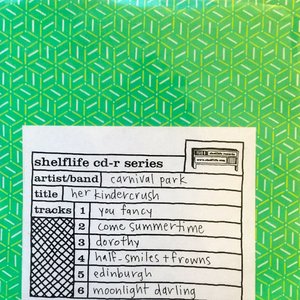 shelflife cd-r series
artist/band carnival park
title her kindercrush
tracks 1 you fancy
2 come summertime
3 dorothy
4 half-smiles + frowns
5 edinburgh
6 moonlight darling